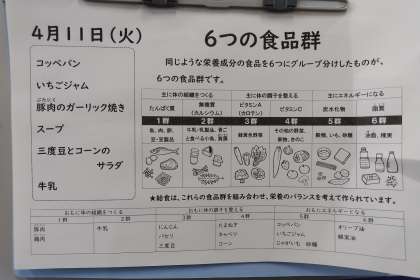 4月11日(火)
コッペパン
いちごジャム
ぶたにく
豚肉のガーリック焼き
スープ
三度豆とコーンの
サラダ
牛乳
6つの食品群
同じような栄養成分の食品を6つにグループ分けしたものが、
6つの食品群です。
主に体の組織をつくる 主に体の調子を整える 主にエネルギーになる
たんぱく質 無機質(カルシウム) ビタミンA(カロテン) ビタミンC 炭水化物 脂質
1群 2群 3群 4群 5群 6群
魚、肉、卵、豆・豆製品 牛乳・乳製品、骨ごと食べる小魚、海藻 緑黄色野菜 その他の野菜、果物、きのこ 穀物、いも、砂糖 油脂、種実
★給食は、これらの食品群を組み合わせ、栄養のバランスを考えて作られています。
おもに体の組織をつくる おもに体の調子を整える おもにエネルギーになる
1群 2群 3群 4群 5群 6群
豚肉 牛乳 にんじん たまねぎ コッペパン オリーブ油
鶏肉 パセリ キャベツ いちごジャム 綿実油
三度豆 コーン じゃがいも 砂糖